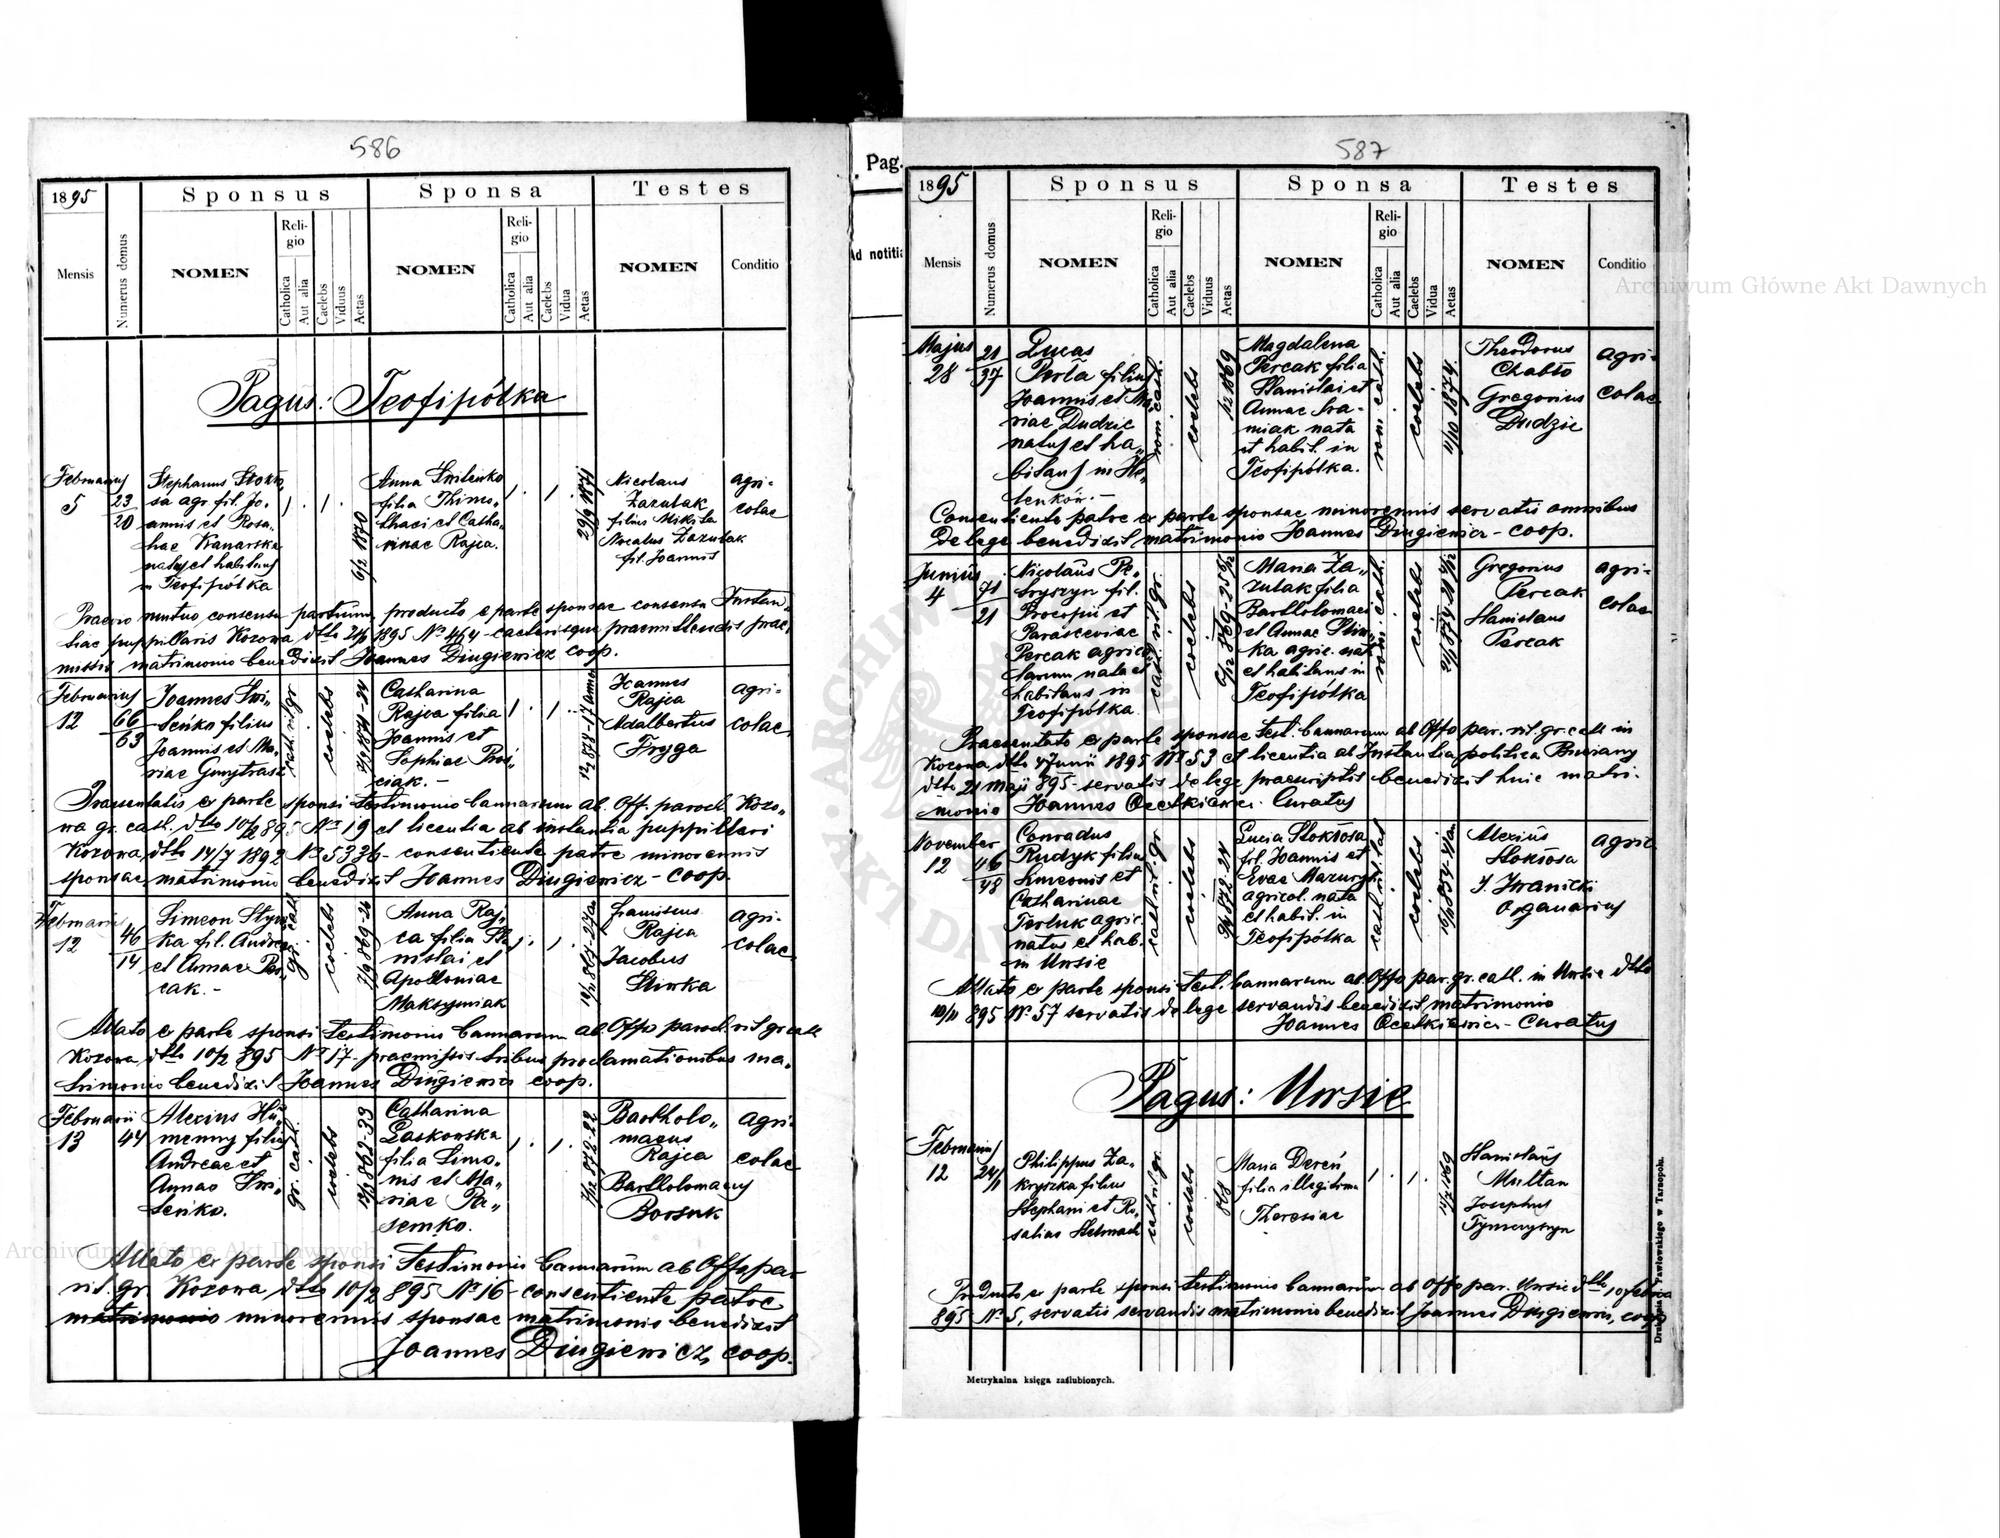 586
1895
Sponsus
Sponsa
Testes
Mensis
Numerus domus
NOMEN
Religio
Catholica
Aut alia
Caelebs
Viduus
Aetas
NOMEN
Religio
Catholica
Aut alia
Caelebs
Vidua
Aetas
NOMEN
Conditio
Pagus: Teofipólka
Februarius
5
23
20
Stephanus
sa agr. fil. Jo-
annis et Rosa-
liae Kanarska
natus et habitans
in Teofipólka
6/2 1870
Anna
filia Thimo-
thaei et Catha-
rinae Rajca.
29/9 1871
Nicolaus
Zazulak
filius Mikita
Zazulak
fil. Joannis
agri-
colae
Praevio mutuo consensu partium, producto e parte sponsae consensu Instan-
tiae puppillaris Kozowa dtto 1895 No 464 - caeterisque praemittendis prae-
missis matrimonio benedixit Joannes Dziugiewicz coop.
Februarius
12
66
63
Joannes Swi-
filius
Joannis et Ma-
riae
cath. rit. gr.
coelebs
Catharina
Rajca filia
Joannis et
Sophiae Pros-
ciak. -
Joannes
Rajca
Adalbertus
Fryga
agri-
colae
Praesentatis ex parte sponsi testimonio bannarum ab Off. paroch. Kozo-
wa gr. cath. dtto 10/2 895 No 19 et licentia ab instantia puppillari
Kozowa, dtto 14/7 1892 No 5336 - consentiente patre minorennis
sponsae, matrimonio benedixit Joannes Dziugiewicz - coop.
Februarius
12
46
14
Simeon Styr-
ka fil. Andreae
et Annae Per-
cak. -
gr. cath.
coelebs
Anna Raj-
ca filia Sta-
nislai et
Apolloniae
Maksymiak
Franciscus
Rajca
Jacobus
agri-
colae
Allato ex parte sponsi testimonio bannarum ab Offo paroch. rit. gr. cath
Kozowa, dtto 10/2 895 No 17 - praemissis tribus proclamationibus ma-
trimonio benedixit Joannes Dziugiewicz coop.
Februarii
13
44
Alexius Hu-
menny filius
Andreae et
Annae
gr. cath.
coelebs
Catharina
Laskowska
filia Simo-
nis et Ma-
riae Pa-
semko.
Bartholo-
maeus
Rajca
Bartholomaeus
Borsuk
agri-
colae
Allato ex parte sponsi testimonio bannarum ab Offo par
rit. gr. Kozowa dtto 10/2 895 No 16 - consentiente patre
matrimonio minorennis sponsae matrimonio benedixit
Joannes Dziugiewicz, coop.
Pag.
Ad notitia
587
1895
Sponsus
Sponsa
Testes
Mensis
Numerus domus
NOMEN
Religio
Catholica
Aut alia
Caelebs
Viduus
Aetas
NOMEN
Religio
Catholica
Aut alia
Caelebs
Vidua
Aetas
NOMEN
Conditio
Majus
28
21
37
Lucas
Perta filius
Joannis et Ma-
riae Dudzic
natus et ha-
bitans in
rom. cath.
coelebs
1/2 1869
Magdalena
Percak filia
Stanislai et
Annae
miak nata
et habit. in
Teofipólka.
rom. cath.
coelebs
Theodorus
Gregorius
Dudzic
agri-
colae
Consentiente patre ex parte sponsae minorennis servatis omnibus
de lege benedixit matrimonio Joannes Dziugiewicz - coop.
Junius
4
71
21
Nicolaus Pe-
tryszyn fil.
Procopii et
Parasceviae
Percak agrico-
larum natus et
habitans in
Teofipólka
cath. rit. gr.
coelebs
Maria Za-
zulak filia
Bartholomaei
et Annae
ka agric. nata
et habitans in
Teofipólka
rom. cath.
coelebs
Gregorius
Percak
Stanislaus
Percak
agri-
colae
Praesentato ex parte sponsae test. bannarum ab Offo par. rit. gr. cath in
Kozowa, dtto 4 Junii 1895 No 53 et licentia ab Instantia politica Brzezany
dtto 21 Maji 895 - servatis de lege praescriptis benedixit huic matri-
monio Joannes Ocetkiewicz. Curatus
November
12
46
48
Conradus
Rudyk filius
Simeonis et
Catharinae
Terluk agric.
natus et hab.
in Ursie
cath. rit. gr
coelebs
Lucia Stoktosa
fil. Joannis et
Evae Mazuryk
agricol. nata
et habit. in
Teofipólka
cath. rit. lat
coelebs
Alexius
Stoktosa
J. Iwanicki
Organarius
agric.
Allato ex parte sponsi test. bannarum ab Offo par. gr. cath. in Ursie dtto
10/11 895 No 57 servatis de lege servandis benedixit matrimonio
Joannes Ocetkiewicz - Curatus
Pagus: Ursie
Februarius
12
24/1
Philippus Za-
kryszka filius
Stephani et Ro-
saliae
cath. rit. gr.
coelebs
868
Maria Dereń
filia illegitima
Theresiae
Stanislaus
Multan
Josephus
agri-
Producto ex parte sponsi testimonio bannarum ab Offo par. Ursie dtto 10 febru
895 No 5, servatis servandis matrimonio benedixit Joannes Dziugiewicz, coop
Metrykalna księga zaślubionych.
Drukarnia Pawłowskiego w Tarnopolu.
Archiwum Główne Akt Dawnych
Archiwum Główne Akt Dawnych